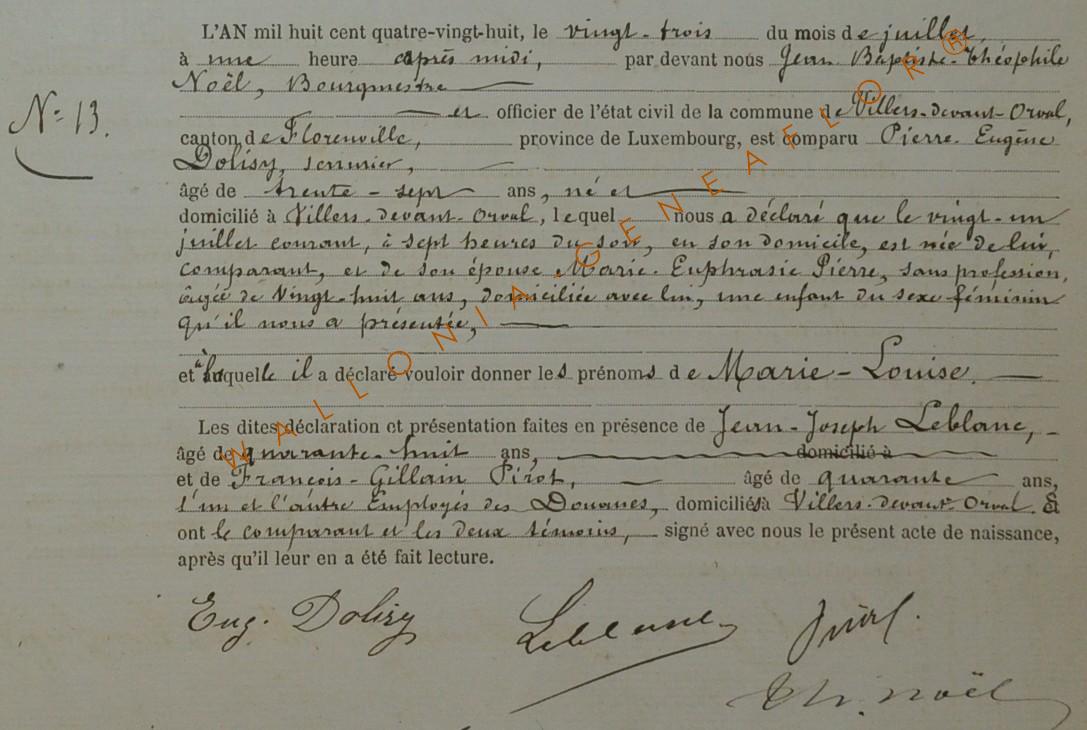 L'AN mil huit cent quatre-vingt-huit, le vingt-trois du mois de juillet,
à une heure après midi, par devant nous Jean Baptiste-Théophile
Noël, Bourgmestre
et officier de l'état civil de la commune de Villers-devant-Orval,
N° 13.
canton de Florenville, province de Luxembourg, est comparu Pierre-Eugène
Dolisy, serrurier,
âgé de trente-sept ans, né et
domicilié à Villers-devant-Orval, lequel nous a déclaré que le vingt-un
juillet courant, à sept heures du soir, en son domicile, est née de lui,
comparant, et de son épouse Marie-Euphrasie Pierre, sans profession,
âgée de vingt-huit ans, domiciliée avec lui, une enfant du sexe féminin
qu'il nous a présentée,
et à laquelle il a déclaré vouloir donner les prénoms de Marie-Louise.
Les dites déclaration et présentation faites en présence de Jean-Joseph Leblanc,
âgé de quarante-huit ans, domicilié à
et de François-Gillain Pirot, âgé de quarante ans,
l'un et l'autre Employés des Douanes, domiciliés à Villers-devant-Orval. Et
ont le comparant et les deux témoins, signé avec nous le présent acte de naissance,
après qu'il leur en a été fait lecture.
Eug. Dolisy Leblanc Pirot.
Th. Noël
WALLONIA-GENEAFLOR®